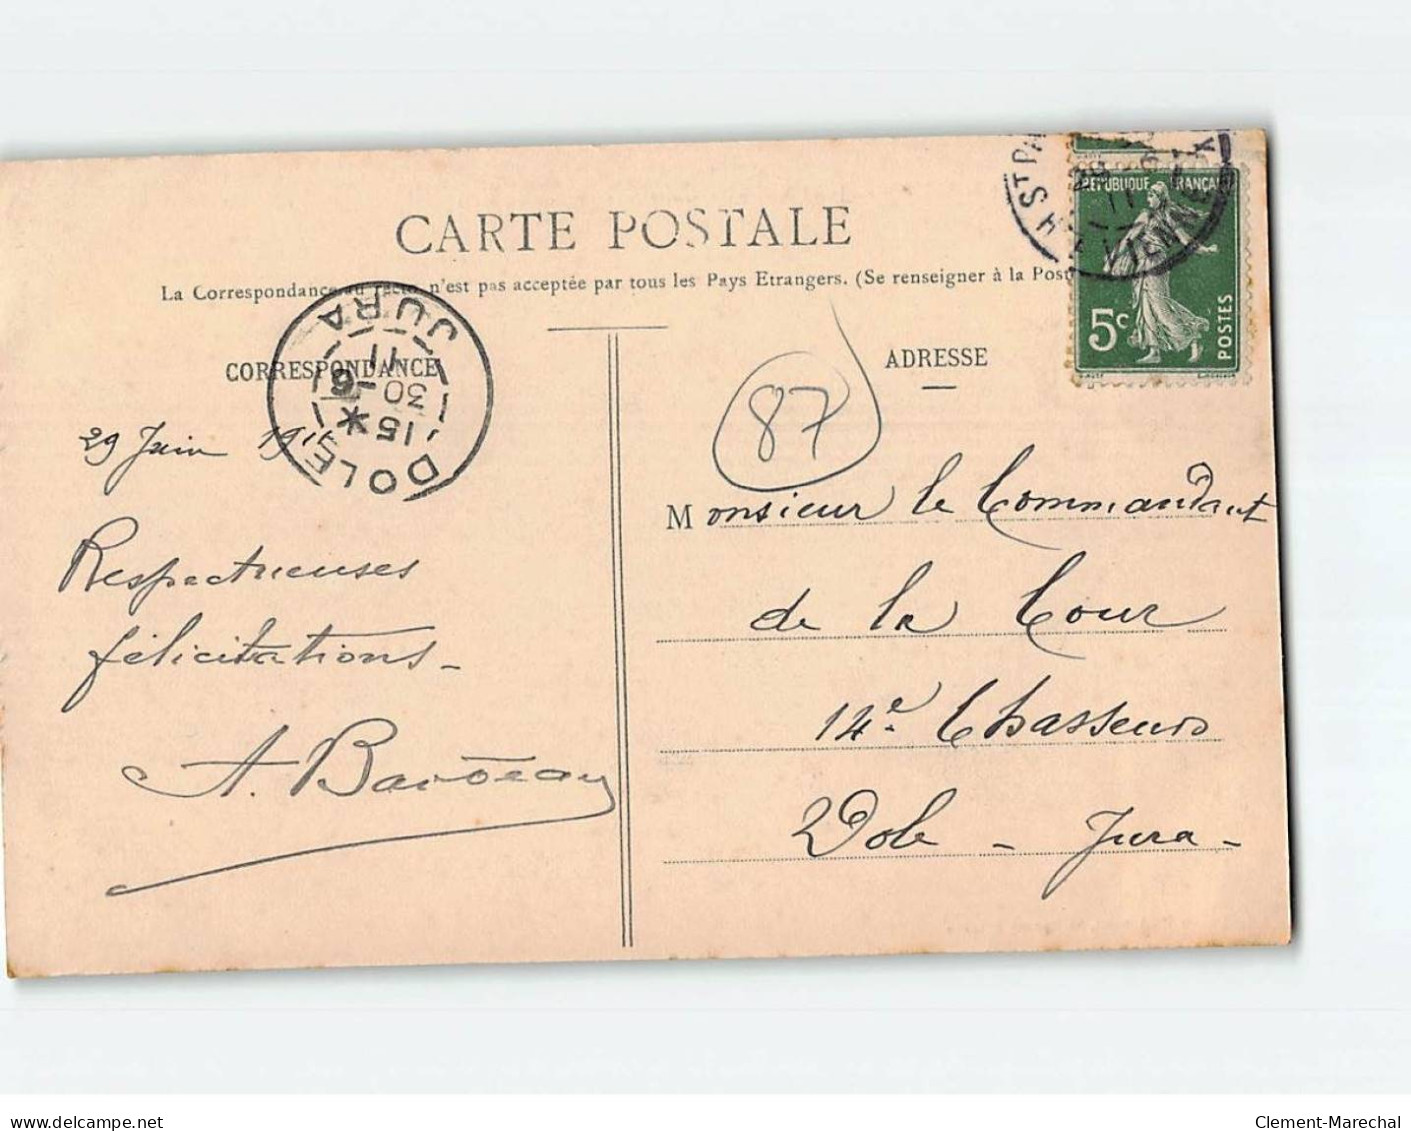 CARTE POSTALE
La Correspondance au recto n'est pas acceptée par tous les Pays Etrangers. (Se renseigner à la Post
CORRESPONDANCE
29 Juin 1911
Respectueuses
félicitations
DOLE
JURA
15 *
30 -6
11
ADRESSE
87
Monsieur le Commandant
de la Cour
14e Chasseurs
Dole - Jura -
REPUBLIQUE FRANCAI
5c
POSTES
ST PA
29 -6
11
HTE VIENNE
delcampe.net
Clement-Marechal